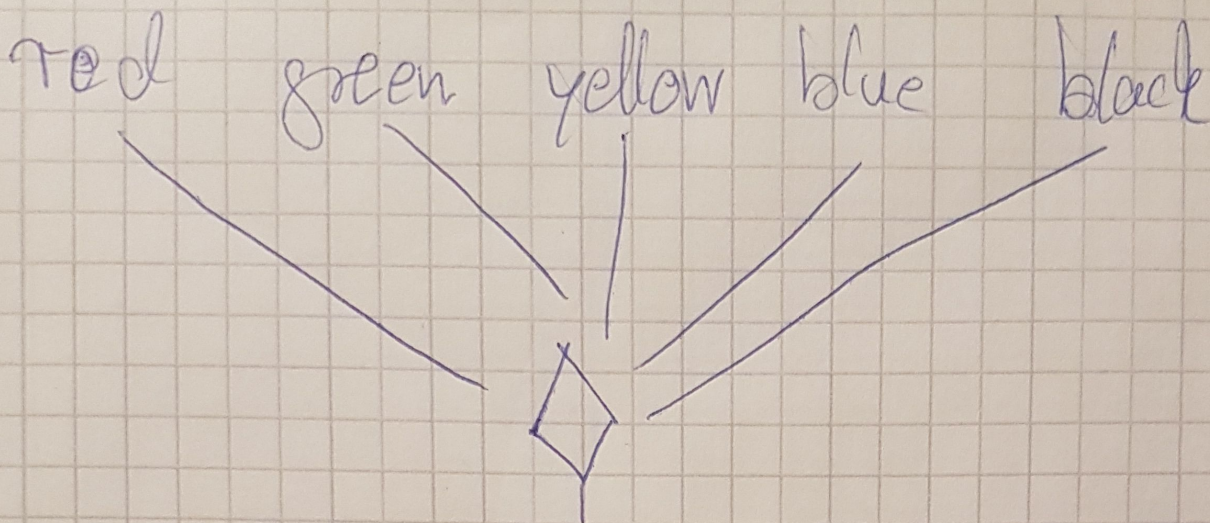 red green yellow blue black